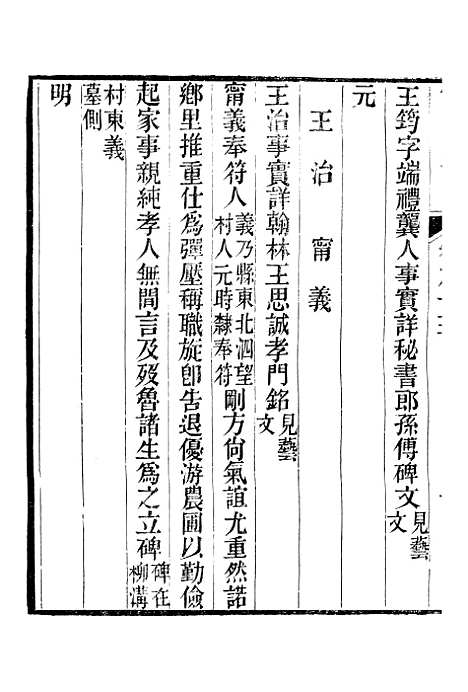 王筠字端禮龔人事實詳秘書郎孫傅碑文見藝文
元
王治　甯義
王治事實詳翰林王思誠孝門銘見藝文
甯義奉符人義乃縣東北泗望村人元時隸奉符剛方尙氣誼尤重然諾
鄉里推重仕爲彈壓稱職旋卽告退優游農圃以勤儉
起家事親純孝人無間言及歿魯諸生爲之立碑碑在柳溝
村東義墓側
明